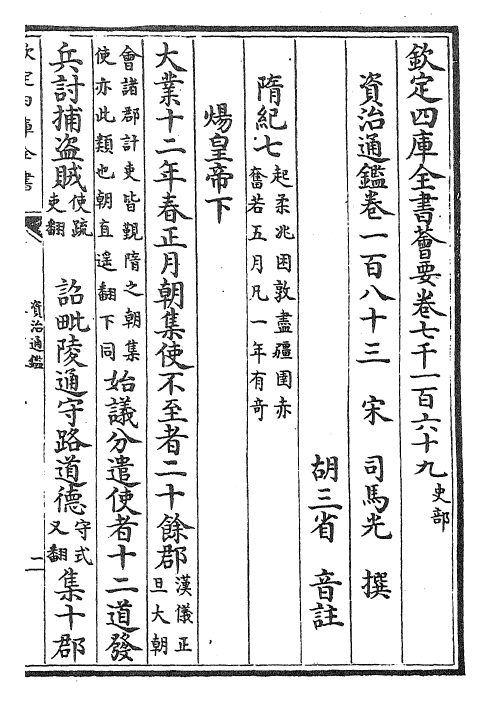 欽定四庫全書薈要卷七千一百六十九 史部
資治通鑑卷一百八十三 宋 司馬光 撰
胡三省 音註
隋紀七 起柔兆困敦盡疆圉赤奮若五月凡一年有奇
煬皇帝下
大業十二年春正月朝集使不至者二十餘郡 漢儀正旦大朝
會諸郡計吏皆覲隋之朝集使亦此類也朝直遥翻下同 始議分遣使者十二道發
兵討捕盜賊 使疏吏翻 詔毗陵通守路道德 守式又翻 集十郡
欽定四庫全書
資治通鑑
二